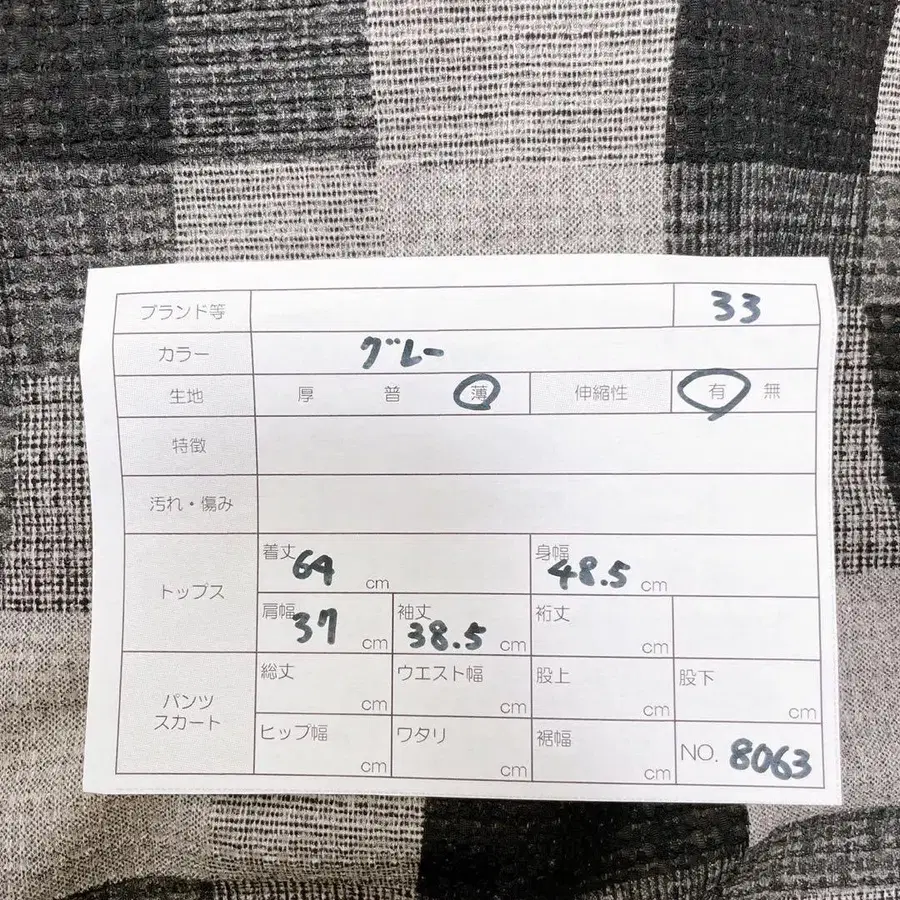 ブランド等 33
カラー グレー
生地 厚 普 薄 伸縮性 有 無
特徴
汚れ・傷み
トップス
着丈 64 cm 身幅 48.5 cm
肩幅 37 cm 袖丈 38.5 cm 裄丈 cm
パンツ
スカート
総丈 cm ウエスト幅 cm 股上 cm 股下 cm
ヒップ幅 cm ワタリ cm 裾幅 cm NO. 8063